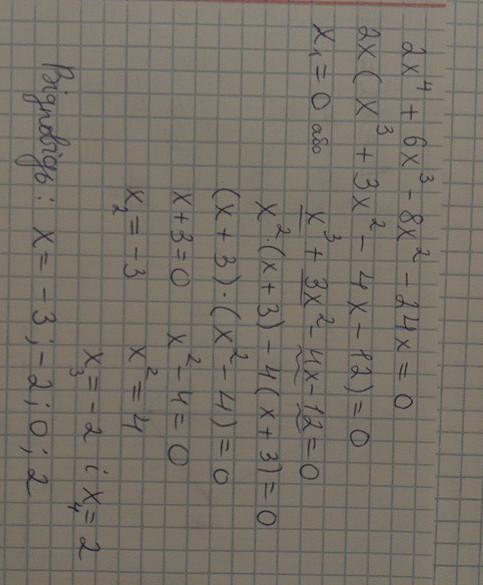 2x⁴ + 6x³ - 8x² - 24x = 0
2x(x³ + 3x² - 4x - 12) = 0
x₁ = 0 або x³ + 3x² - 4x - 12 = 0
x²·(x + 3) - 4(x + 3) = 0
(x + 3)·(x² - 4) = 0
x + 3 = 0 x² - 4 = 0
x₂ = -3 x² = 4
x₃ = -2 і x₄ = 2
Відповідь: x = -3; -2; 0; 2